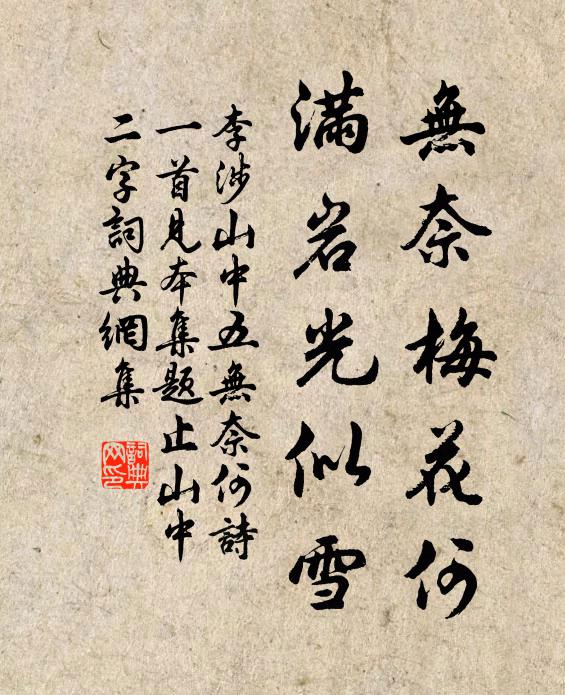 無奈梅花何
滿岩光似雪
李涉山中五無奈何詩
一首見本集題止山中
二字詞典網集
詞典
网印